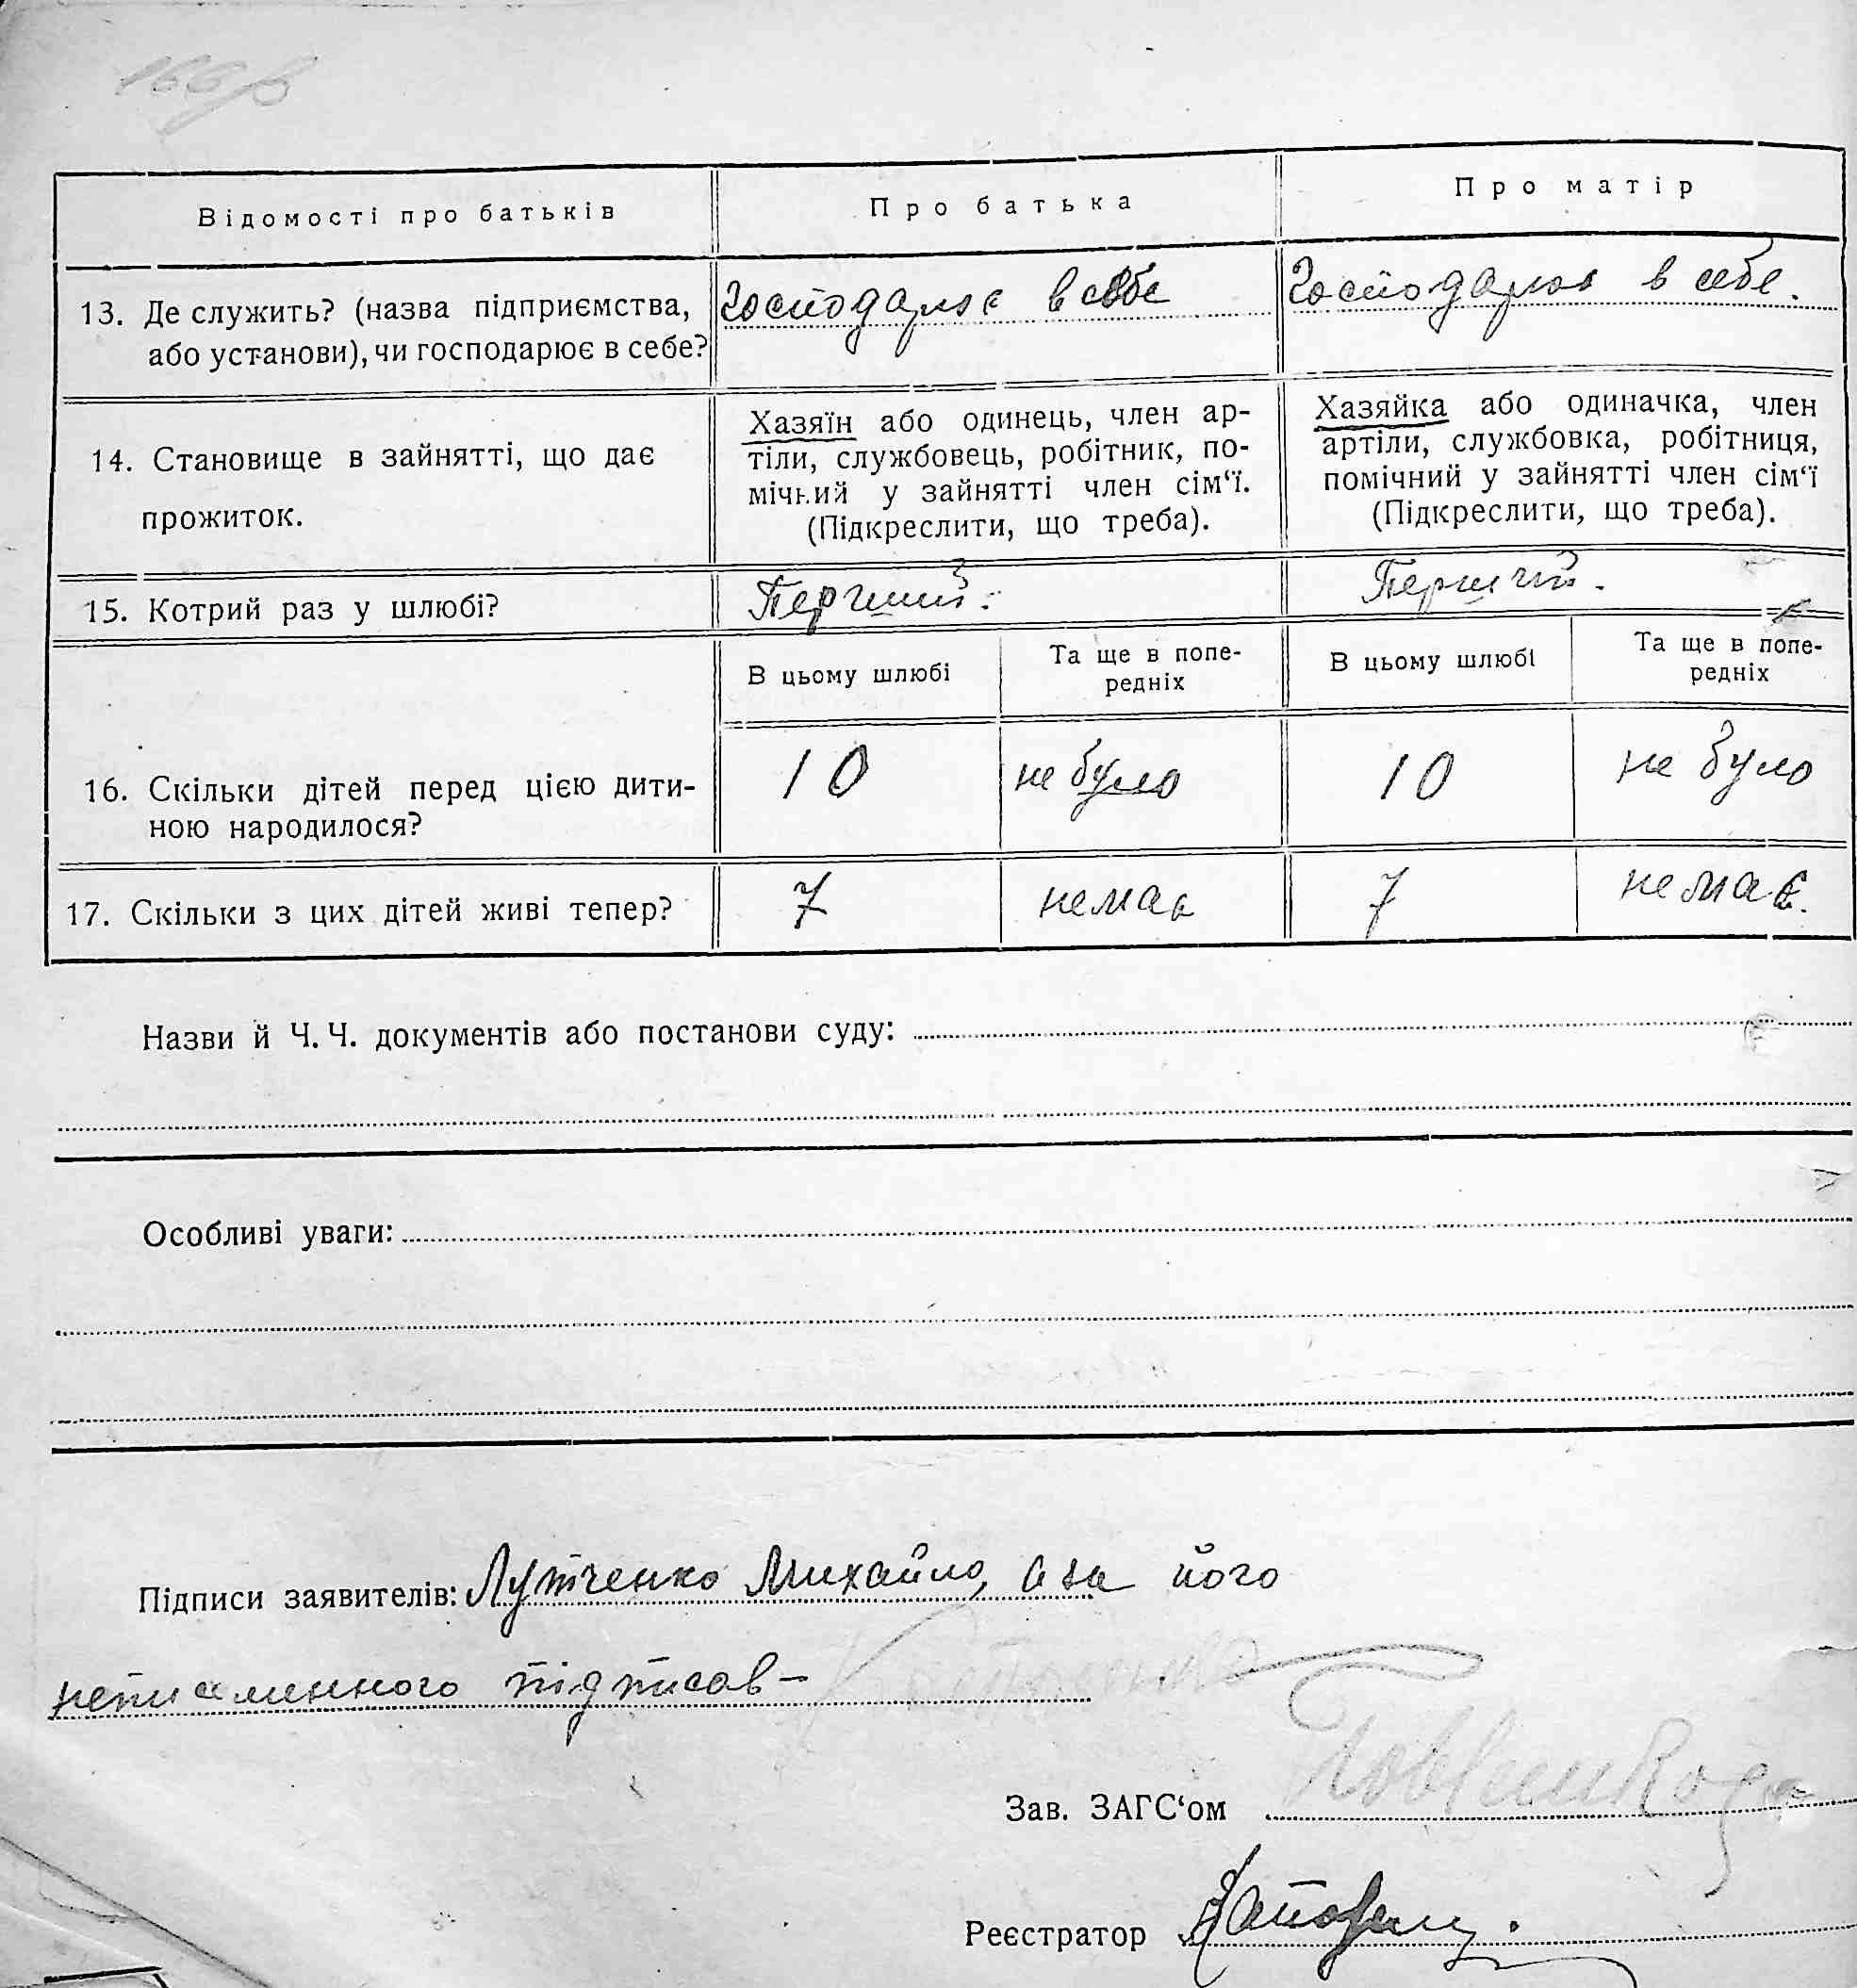 166 в
Відомості про батьків
Про батька
Про матір
13. Де служить? (назва підприємства,
або установи), чи господарює в себе?
Господарює в себе
Господарює в себе.
14. Становище в зайнятті, що дає
прожиток.
Хазяїн або одинець, член ар-
тіли, службовець, робітник, по-
мічний у зайнятті член сім‘ї.
(Підкреслити, що треба).
Хазяйка або одиначка, член
артіли, службовка, робітниця,
помічний у зайнятті член сім‘ї
(Підкреслити, що треба).
15. Котрий раз у шлюбі?
Перший.
Перший.
В цьому шлюбі
Та ще в попе-
редніх
В цьому шлюбі
Та ще в попе-
редніх
16. Скільки дітей перед цією дити-
ною народилося?
10
не було
10
не було
17. Скільки з цих дітей живі тепер?
7
немає
7
немає.
Назви й Ч. Ч. документів або постанови суду:
Особливі уваги:
Підписи заявителів: Лутченко Михайло, а за його
неписьменного підписав –
Зав. ЗАГС‘ом
Реєстратор